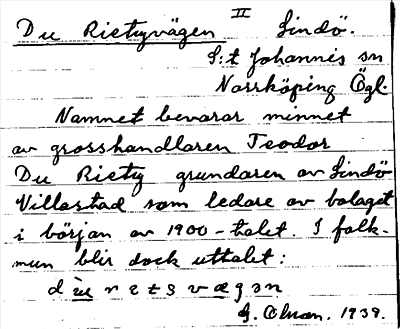 Du Rietzvägen II Lindö.
S:t Johannis sn
Norrköping Ögl.
Namnet bevarar minnet
av grosshandlaren Teodor
Du Rietz grundaren av Lindö
Villastad som ledare av bolaget
i början av 1900-talet. I folk-
mun blir dock uttalet:
G. Elman. 1939.